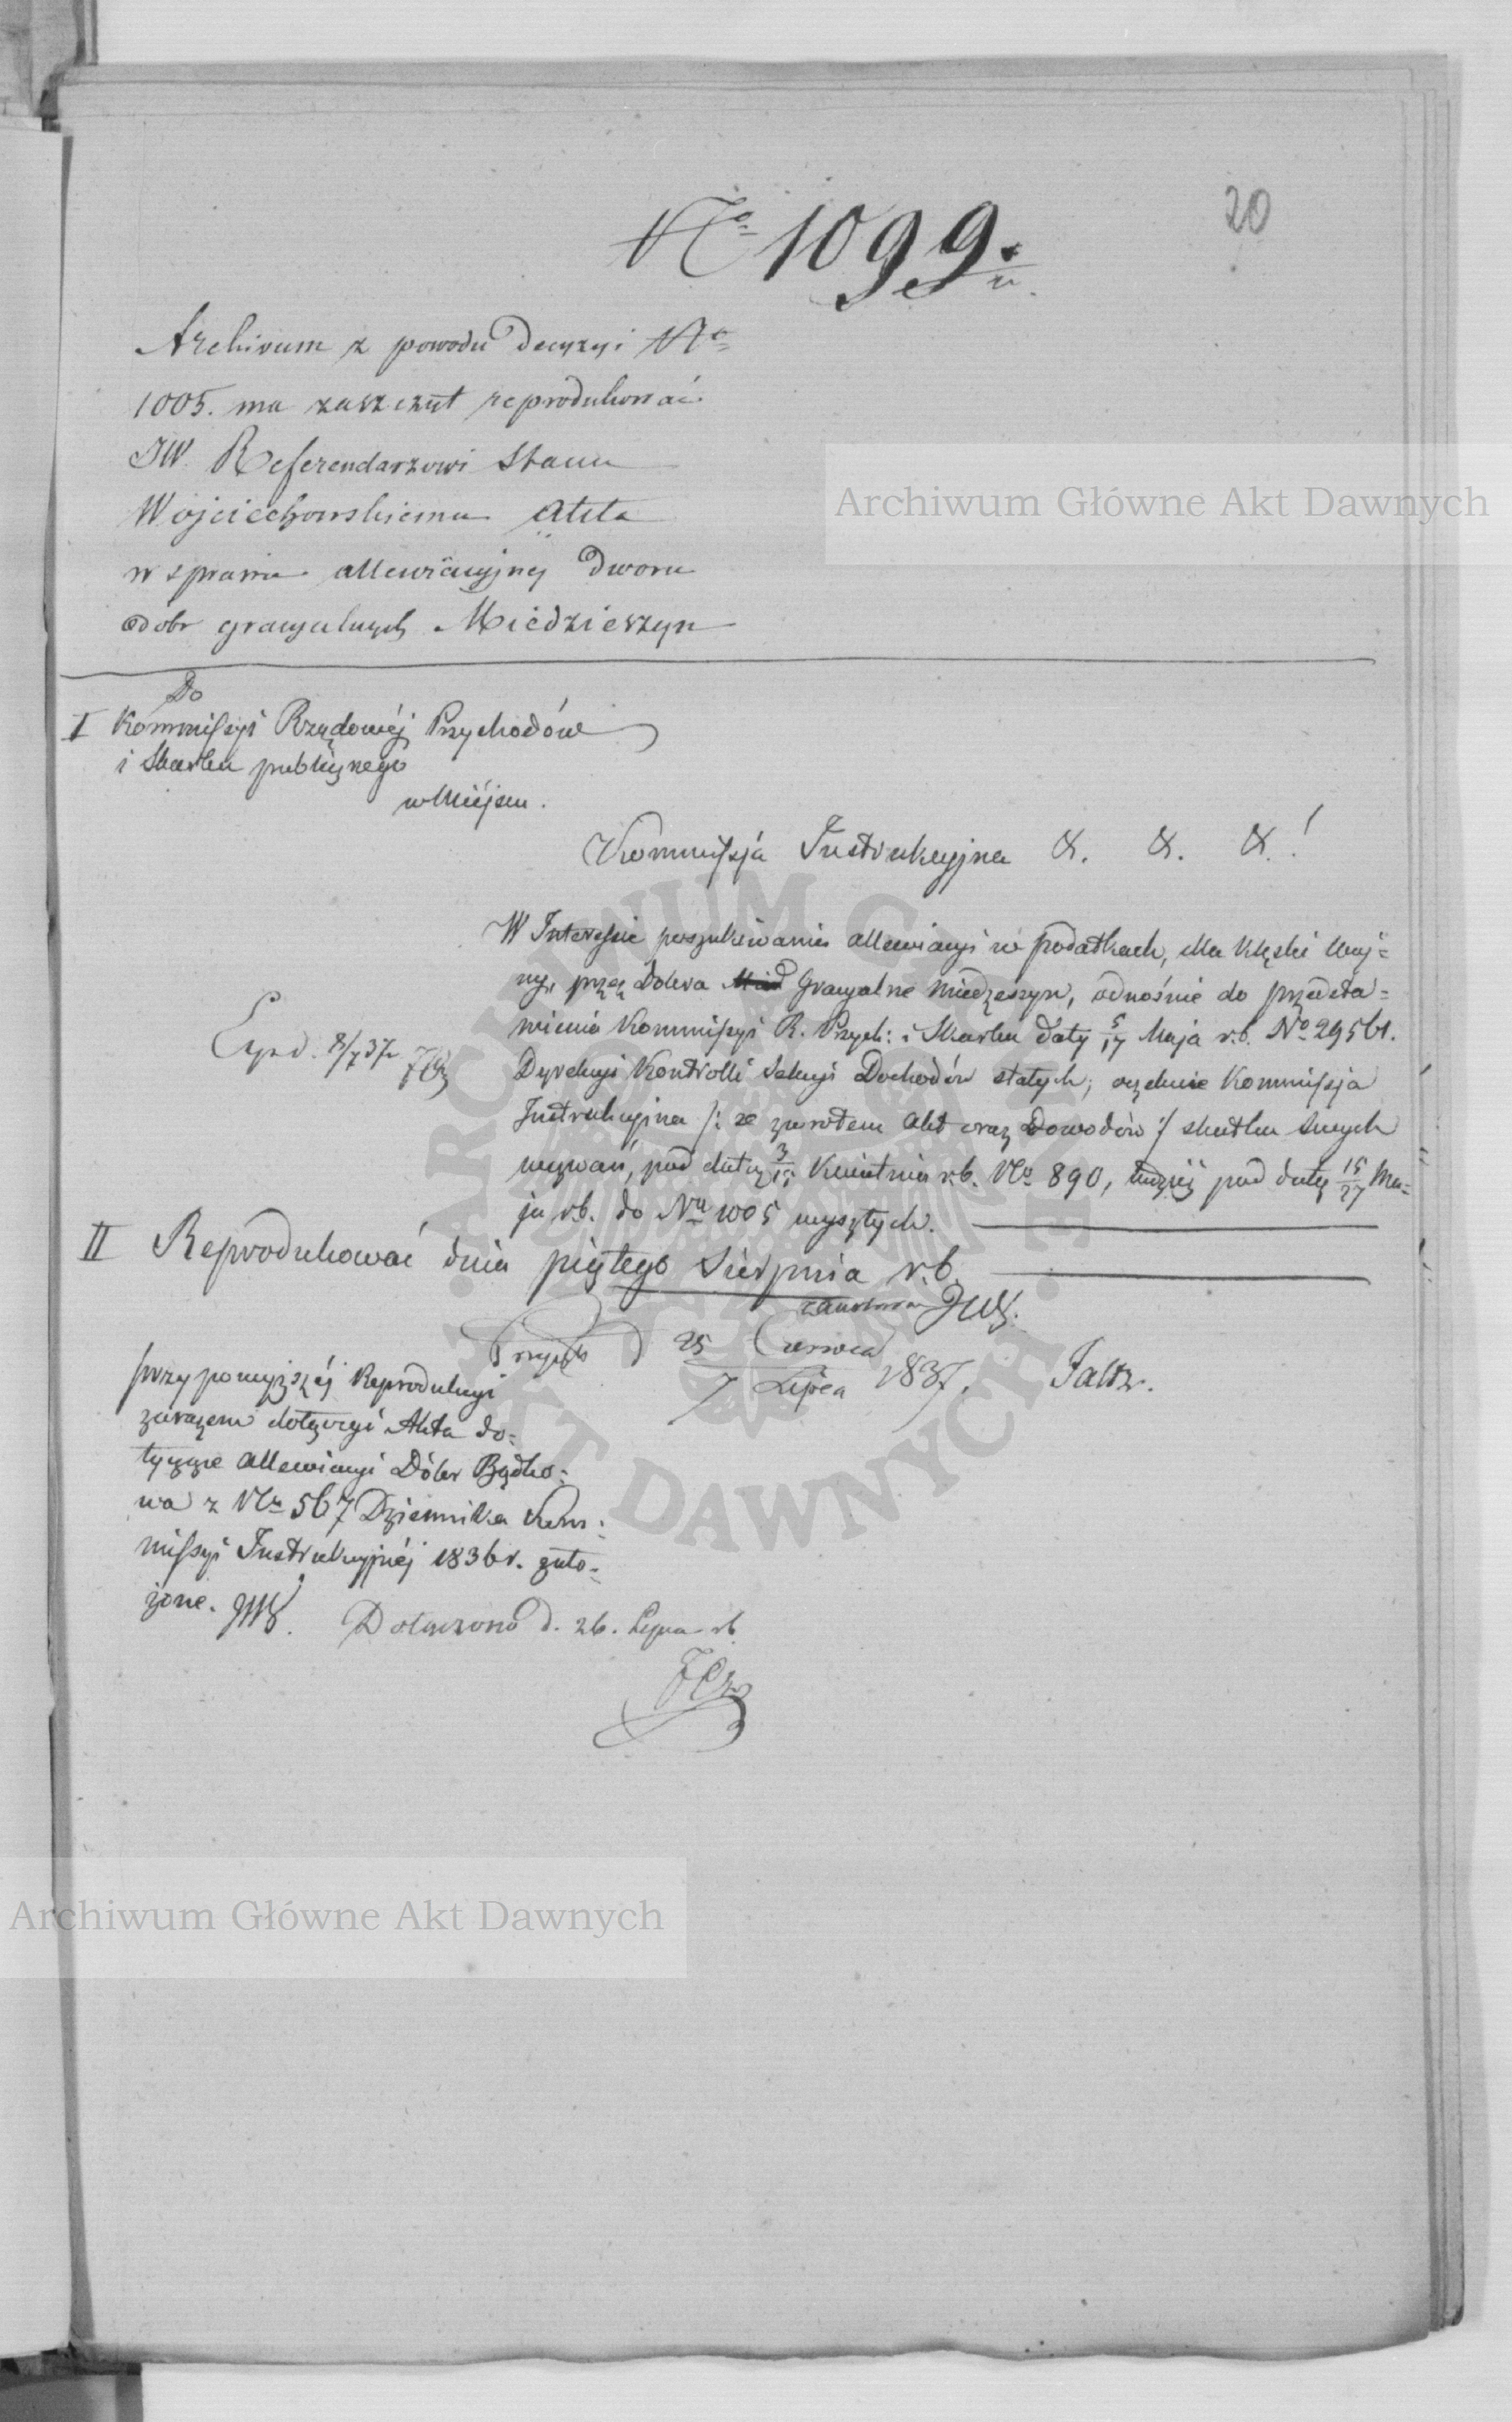 20
No 1099.
Archivum z powodu Decyzyi No
1005. ma zaszczyt reprodukować
JW. Referendarzowi Stanu
Wojciechowskiemu Akta
w sprawie allewiacyjnej Dworu
dobr gracyalnych Miedzieszyn
Do
I Kommissyi Rządowéj Przychodów
i Skarbu publicznego
w Miejscu.
Kommissja Instrukcyjna &. &. &.!
W Interessie poszukiwania allewiacyi w podatkach, dla klęski woj=
ny, przez Dobra Gracyalne Miedzeszyn, odnośnie do przedsta=
wienia Kommissyi R. Przych: i Skarbu daty 5/17 Maja r.b. No 29561.
Dyrekcyi Kontrolli Sekcyi Dochodów stałych; oczekuie Kommissja
Instrukcyjna /: ze zwrotem Akt oraz Dowodów :/ skutku swych
wezwań, pod datą 3/15 Kwietnia r.b. No 890, tudzież pod datą 15/27 Ma=
ja r.b. do Nu 1005 wyszłych.
Exped. 8/7 37
II Reprodukować dnia piątego Sierpnia r.b.
25 Czerwca
7 Lipca 1837.
Faltz.
przy powyższéj Reprodukcyi
zarazem dołączyć Akta do=
tyczące allewiacyi Dóbr Bądko=
wa z Nu 567 Dziennika Kom=
missyi Instrukcyjnéj 1836 r. zało=
żone. JW.
Dołączono d. 26. Lipca rb